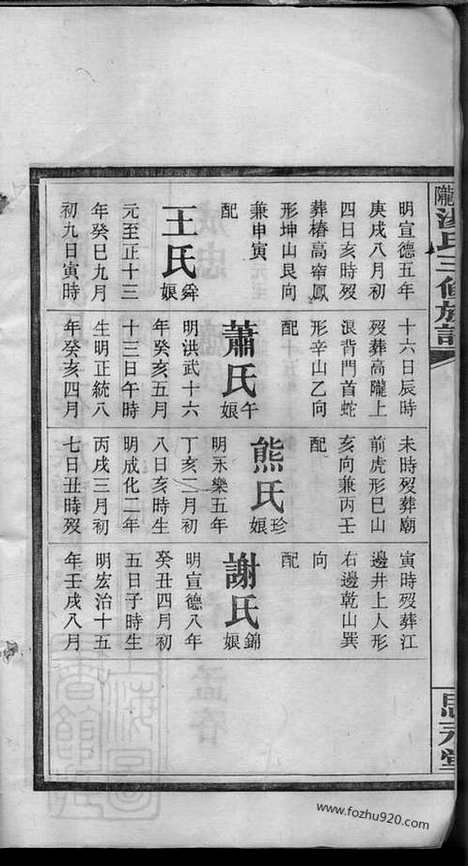 氏三修族譜
明宣德五年
庚戌八月初
四日亥時歿
葬椿高鳳
形坤山艮向
兼申寅
配
王氏舜娘
元至正十三
年癸巳九月
初九日寅時
十六日辰時
歿葬高隴上
浪背門首蛇
形辛山乙向
配
蕭氏午娘
明洪武十六
年癸亥五月
十三日午時
生明正統八
年癸亥四月
未時歿葬廟
前虎形巳山
亥向兼丙壬
配
熊氏珍娘
明永樂五年
丁亥二月初
八日亥時生
明成化二年
丙戌三月初
七日丑時歿
寅時歿葬江
邊井上人形
右邊乾山巽
向
配
謝氏錦娘
明宣德八年
癸丑四月初
五日子時生
明宏治十五
年壬戌八月
上海圖書館藏
www.fozhu920.com